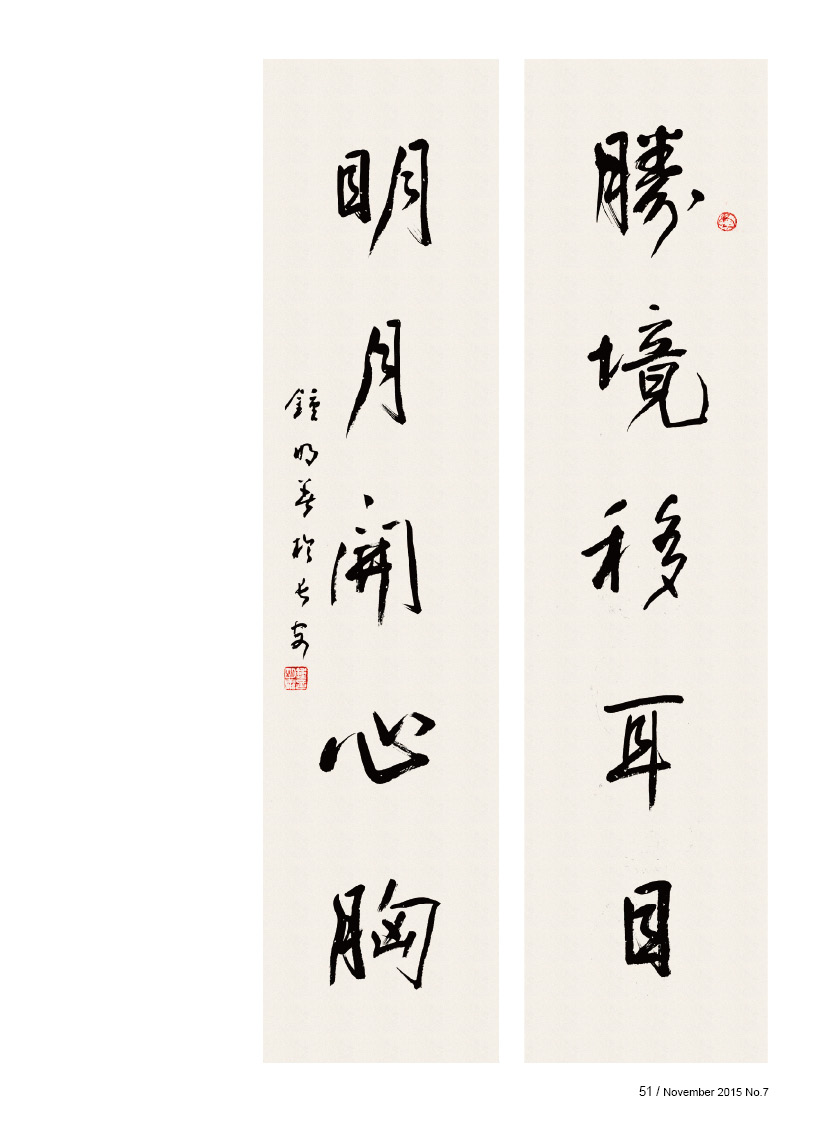 勝境移耳目
明月開心胸
鐘明善於長安
51 / November 2015 No.7